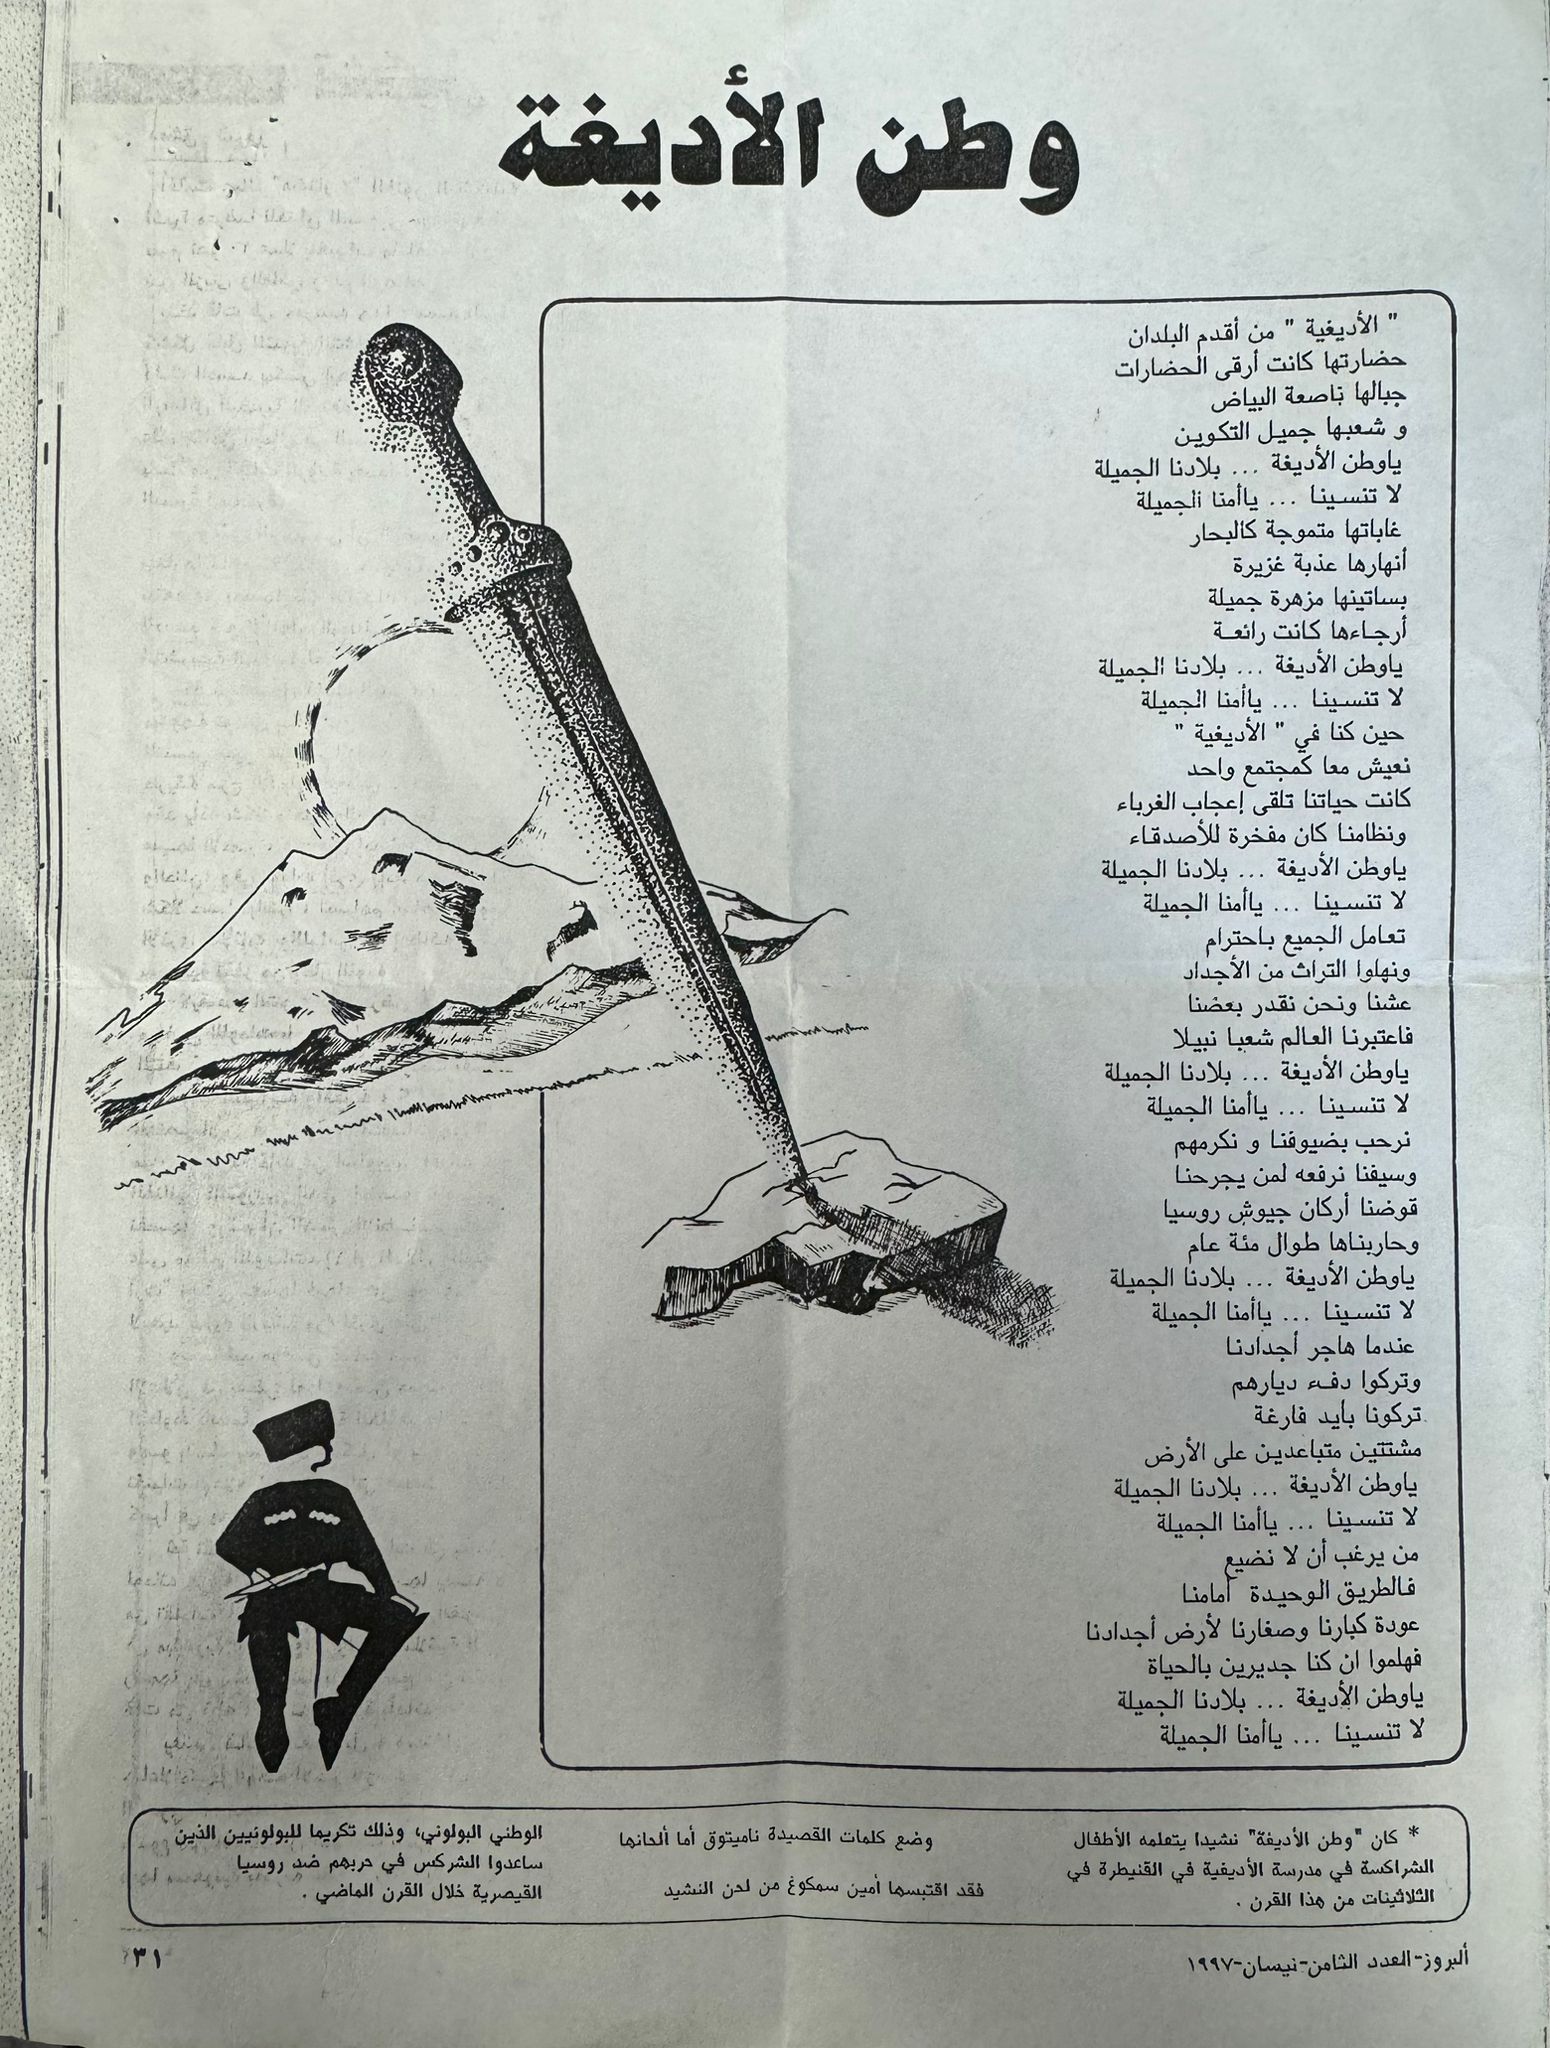 وطن الأديغة
" الأديغية " من أقدم البلدان
حضارتها كانت أرقى الحضارات
جبالها ناصعة البياض
و شعبها جميل التكوين
ياوطن الأديغة ... بلادنا الجميلة
لا تنسينا ... ياأمنا الجميلة
غاباتها متموجة كالبحار
أنهارها عذبة غزيرة
بساتينها مزهرة جميلة
أرجاءها كانت رائعة
ياوطن الأديغة ... بلادنا الجميلة
لا تنسينا ... ياأمنا الجميلة
حين كنا في " الأديغية "
نعيش معا كمجتمع واحد
كانت حياتنا تلقى إعجاب الغرباء
ونظامنا كان مفخرة للأصدقاء
ياوطن الأديغة ... بلادنا الجميلة
لا تنسينا ... ياأمنا الجميلة
تعامل الجميع باحترام
ونهلوا التراث من الأجداد
عشنا ونحن نقدر بعضنا
فاعتبرنا العالم شعبا نبيلا
ياوطن الأديغة ... بلادنا الجميلة
لا تنسينا ... ياأمنا الجميلة
نرحب بضيوفنا و نكرمهم
وسيفنا نرفعه لمن يجرحنا
قوضنا أركان جيوش روسيا
وحاربناها طوال مئة عام
ياوطن الأديغة ... بلادنا الجميلة
لا تنسينا ... ياأمنا الجميلة
عندما هاجر أجدادنا
وتركوا دفء ديارهم
تركونا بأيد فارغة
مشتتين متباعدين على الأرض
ياوطن الأديغة ... بلادنا الجميلة
لا تنسينا ... ياأمنا الجميلة
من يرغب أن لا نضيع
فالطريق الوحيدة أمامنا
عودة كبارنا وصغارنا لأرض أجدادنا
فهلموا ان كنا جديرين بالحياة
ياوطن الأديغة ... بلادنا الجميلة
لا تنسينا ... ياأمنا الجميلة
* كان "وطن الأديغة" نشيدا يتعلمه الأطفال
الشراكسة في مدرسة الأديغية في القنيطرة في
الثلاثينات من هذا القرن .
وضع كلمات القصيدة ناميتوق أما ألحانها
فقد اقتبسها أمين سمكوغ من لحن النشيد
الوطني البولوني، وذلك تكريما للبولونيين الذين
ساعدوا الشركس في حربهم ضد روسيا
القيصرية خلال القرن الماضي .
ألبروز-العدد الثامن-نيسان-١٩٩٧
٣١